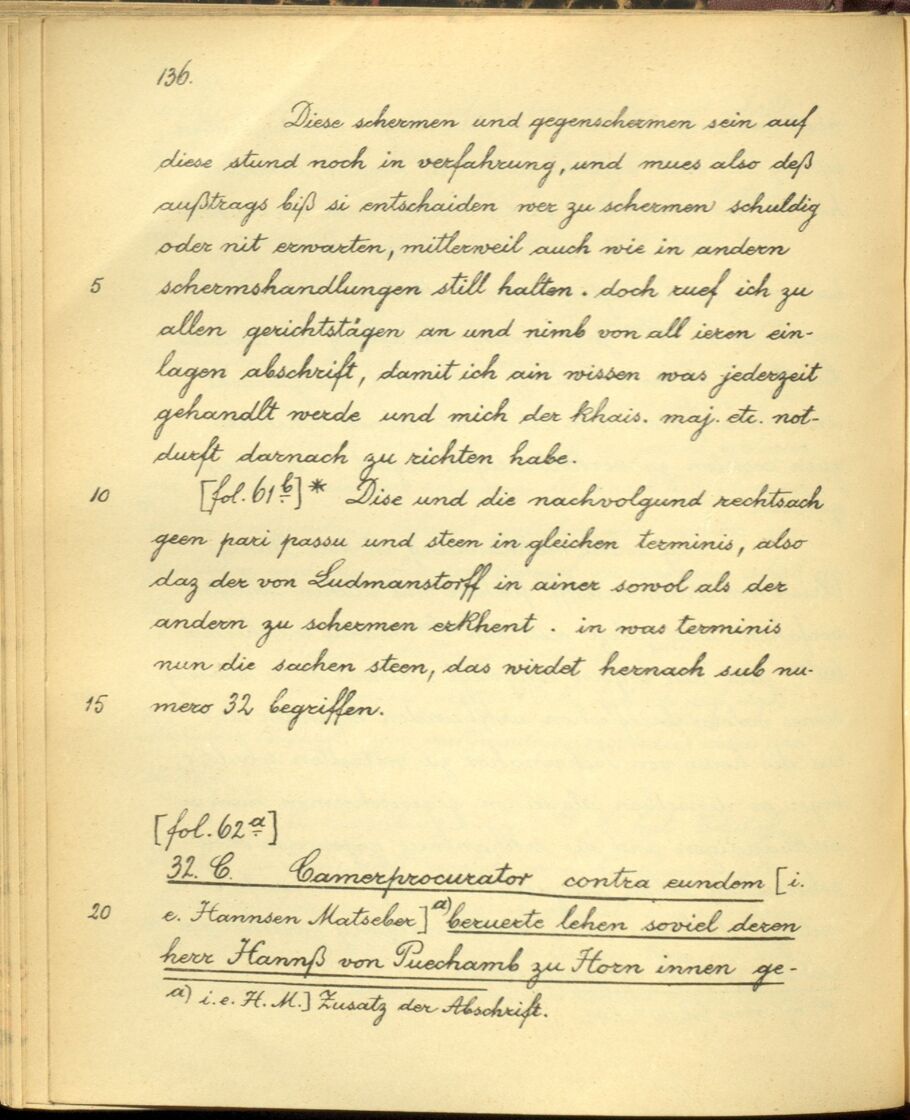 136.
Diese schermen und gegenschermen sein auf
diese stund noch in verfahrung, und mues also deß
außtrags biß si entschaiden wer zu schermen schuldig
oder nit erwarten, mitlerweil auch wie in andern
5 schermshandlungen still halten. doch ruef ich zu
allen gerichtstägen an und nimb von all ieren ein-
lagen abschrift, damit ich ain wissen was jederzeit
gehandlt werde und mich der khais. maj. etc. not-
durft darnach zu richten habe.
10 [fol. 61 b]* Dise und die nachvolgund rechtsach
geen pari passu und steen in gleichen terminis, also
daz der von Ludmanstorff in ainer sowol als der
andern zu schermen erkhent. in was terminis
nun die sachen steen, das wirdet hernach sub nu-
15 mero 32 begriffen.
[fol. 62 a]
32. C. Camerprocurator contra eundem [i.
20 e. Hannsen Matseber] a) beruerte lehen soviel deren
herr Hannß von Puechamb zu Horn innen ge-
a) i.e. H. M.] Zusatz der Abschrift.